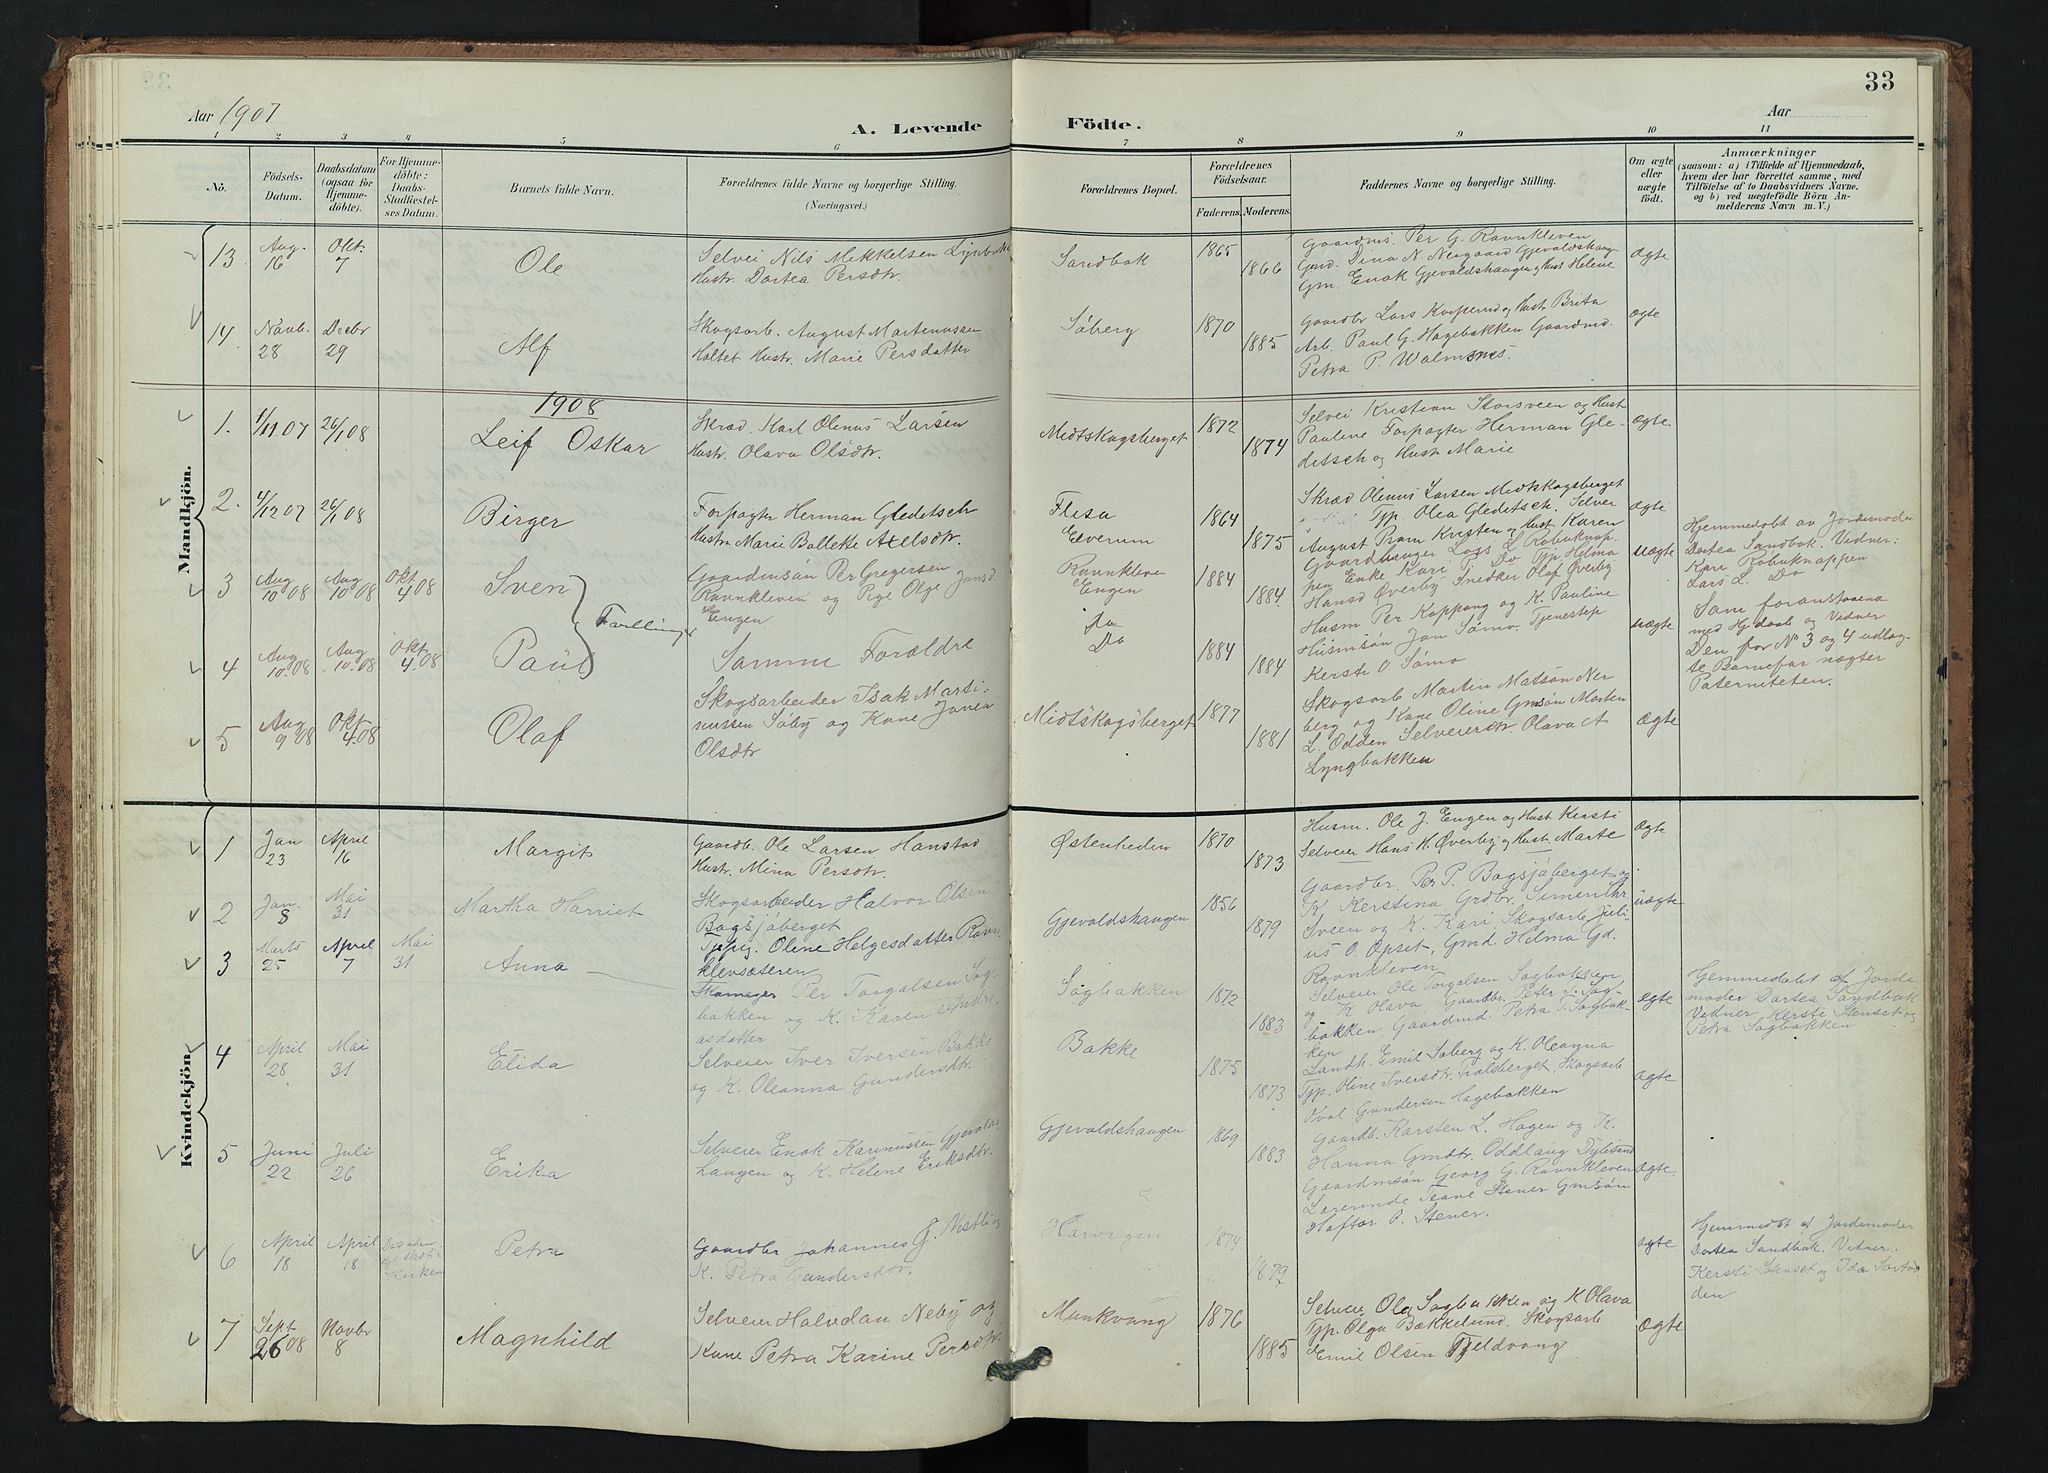 33
Aar 1907
A. Levende Födte.
Aar
1 2 3 4 5 6 7 8 9 10 11
No.
Födsels-Datum.
Daabsdatum (ogsaa for Hjemmedöbte).
For Hjemmedöbte: Daabs-Stadfæstelses Datum.
Barnets fulde Navn.
Forældrenes fulde Navne og borgerlige Stilling.
(Næringsvei.)
Forældrenes Bopæl.
Forældrenes Födselsaar.
Faderens. Moderens.
Faddernes Navne og borgerlige Stilling.
Om ægte eller uægte födt.
Anmærkninger
(saasom: a) i Tilfælde af Hjemmedaab,
hvem der har forrettet samme, med
Tilföielse af to Daabsvidners Navne.
og b) ved uægtefödte Börn An-
melderens Navn m. V.)
Mandkjön.
13 Aug. 16 Okt. 7 Ole
Selvei Nils Mekkelsen
Hustr. Dortea Persdtr.
Sandbak 1865 1866
Gaardms. Per G. Ravnkleven
Gmd. Dina N. Nergaard Gjevaldshaug
Gm. Enok Gjevaldshaugen og Hust Helene
ægte
14 Novb. 28 Decbr 29 Alf
Skogsarb. August Martinussen
Holtet Hustr. Marie Persdatter
Søberg 1870 1885
Gaardbr Lars Korperud og Hust Brita
Arb. Paul G. Hagebakken Gaardmd.
Petra P. Walmsnes.
ægte
1908
1. 1/11 07 26/1 08 Leif Oskar
Skræd. Karl Olenus Larsen
Hustr. Olava Olsdtr.
Midtskogsberget 1872 1874
Selvei Kristian Storsveen og Hust
Pauline Forpagter Herman Gle-
ditsch og Hust Marie
ægte
2. 4/12 07 26/1 08 Birger
Forpagter Herman Gleditsch
Hustr Marie Bollette Axelsdtr.
Flisa Elverum 1864 1875
Skræd Olenus Larsen Midtskogsberget
Tjp. Olea Gleditsch. Selvei
August Pram Kristen og Hust Karen
ægte
3 Aug 10 08 Aug 10 08 Okt 4 08 Sven
Gaardmsøn Per Gregersen
Ravnkleven og Pige Olge Jonsd.
Engen.
Ravnkleve Engen 1884 1884
Gaardmager Lars L Røbuknap-
pen Enke Kari Do Tjp. Helma
Hansd Øverby Snedker Olaf Øverby
uægte
Hjemmedøbt av Jordemoder
Dortea Sandbak. Vidner:
Kari Røbuknappen
Lars L. Do
Tvillinger
4 Aug 10 08 Aug 10 08 Okt 4 08 Paul
Samme Forældre
Do Do 1884 1884
Husm Per Koppang og K. Pauline
Husmsøn Jon Sømo. Tjenestep
Kersti O Sømo
uægte
Som foranstaaende
med Hjdaab og Vidner
Den for No 3 og 4 udlag-
te Barnefar nægter
Paterniteten.
5 Aug 9 08 Okt 4 08 Olaf
Skogsarbeider Isak Marti-
nussen Søby og Kone Jonea
Olsdtr
Midtskogsberget 1877 1881
Skogsarb Martin Matsøn Ner
berg og Kone Oline Gmsøn Morten
L. Odden Selveierdtr. Olava A
Lyngbakken
ægte
Kvindekjön.
1 Jan 23 April 16 Margit
Gaardb. Ole Larsen Hanstad
Hustr. Mina Persdtr.
Østenheden 1870 1873
Husm. Ole J. Engen og Hust Kersti
Selveier Hans H. Øverby og Hust. Marte
ægte
2 Jan. 8 Mai 31 Martha Harriet
Skogsarbeider Halvor Olsen
Bogsjøberget
Tjpig. Oline Helgesdatter Ravn-
klevsæteren
Gjevaldshaugen 1856 1879
Gaardbr. Per P. Bogsjøberget og
K Kerstina, Grdbr. Simen Thr
Sveen og K. Kari Skogsarb. Juli
us O. Opset, Gmd. Helma Gd.
Ravnkleven
uægte
3 Marts 25 April 7 Mai 31 Anna
Skomager Per Torgalsen Sag-
bakken og K. Karen Andre-
asdatter
Sagbakken 1872 1883
Selveier Ole Torgalsen Sagbakken
og K Olava Gaardbr. Peter T. Sag-
bakken, Gaardmd. Petra T. Sagbak-
ken
ægte
Hjemmedøbt af Jorde
moder Dortea Sandbak
Vidner Kersti Stenset og
Petra Sagbakken
4 April 28 Mai 31 Elida
Selveier Iver Iversen Bakke
og K. Oleanna Gundersdtr.
Bakke 1875 1873
Landh. Emil Søberg og K. Oleanna
Tjp. Oline Iversdtr. Troldberget, Skogsarb
Oval Gundersen Hagebakken
ægte
5 Juni 22 Juli 26 Erika
Selveier Enok Karinussen Gjevalds-
haugen og K. Helene Eriksdtr.
Gjevaldshaugen 1869 1883
Gaardb. Karsten L. Hagen og K.
Hanna Gmdtr. Oddlaug Dylisand
Gaardmsøn Georg G. Ravnkleven
Lærerinde Stener Gmsøn
Haftor O. Stener.
ægte
6 April 18 April 18 Petra
Gaardbr Johannes J. Nestby og
K. Petra Gundersdtr.
Harvegen 1874 1879
ægte
Hjemmedøbt af Jordemoder
Dortea Sandbak. Vidner.
Kersti Stenset og Ida
den
7 Sept 26 08 Novbr 8 Magnhild
Selveier Halvdan Neby og
Kone Petra Karine Persdtr.
Munkvang 1876 1885
Selveier Ole Sagbakken og K Olava
Tjp. Olga Bækkelund. Skogsarb
Emil Olsen Fjeldvang
ægte